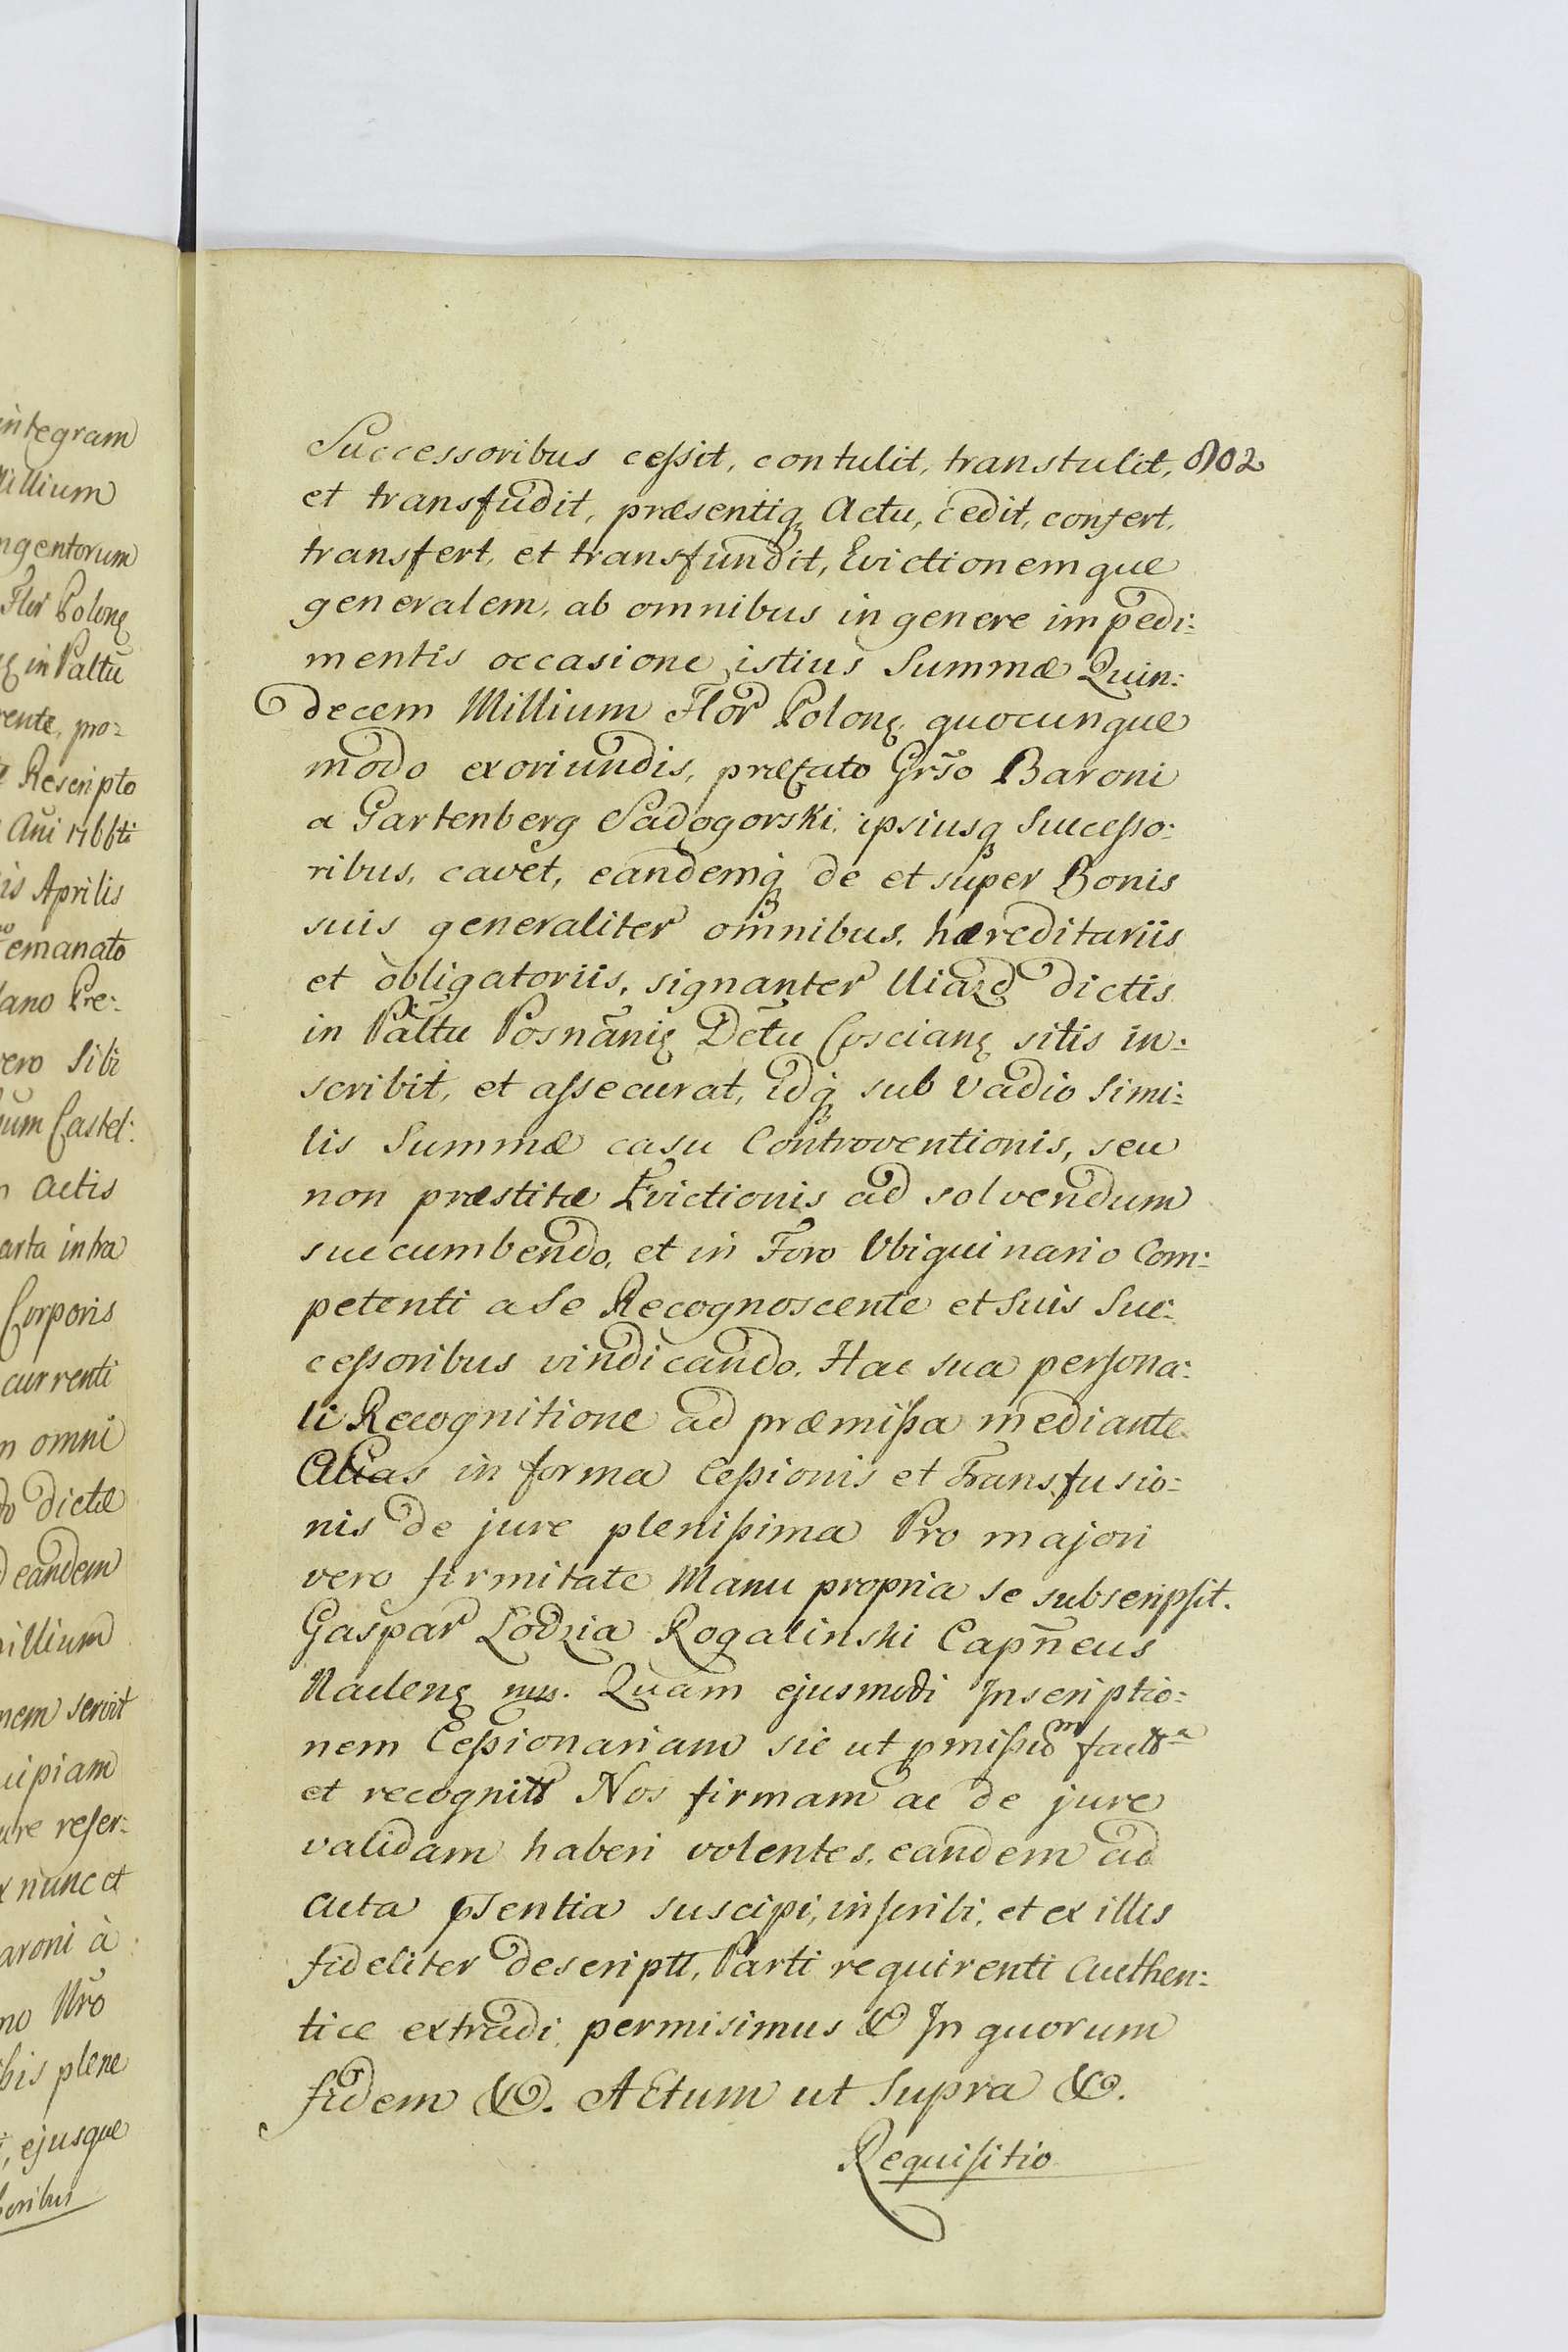 integram
Millium
ngentorum
Flor Polonę
ę in Paltũ
rente, pro=
Rescripto
Ani 1766ti
is Aprilis
emanato
lano Pre:
vero Sibi
um Castel:
Actis
arta intra
Corporis
currenti
m omni
to dictæ
eandem
illium
nem servit
cipiam
ure refer:
x nunc et
aroni à
no Nrõ
bis plene
, ejusque
soribus
Successoribus cessit, contulit, transtulit, 802
et transfudit, præsentiq; Actu, cedit, confert,
transfert, et transfundit, Evictionemque
generalem, ab omnibus in genere impedi:
mentis occasione istius Summæ Quin:
decem Millium Flor Polonę, quocunque
modo exoriundis, præfato Grso Baroni
a Gartenberg Sadogorski, ipsiusq; Successo:
ribus, cavet, eandemq; de et super Bonis
suis generaliter omnibus, hæreditariis
et obligatoriis, signanter Uiazd dictis
in Pältu Posnãnię Dẽtu Coscianę sitis in:
scribit, et assecurat, idq; sub vadio Simi:
lis Summæ casu Controventionis, seu
non præstitæ Evictionis ad solvendum
succumbendo, et in Foro Ubiquinario Com:
petenti a Se Recognoscente et Suis Suc:
cessoribus vindicando. Hac sua persona:
li Recognitione ad præmissa mediante
Alias in forma Cessionis et Transfusio:
nis de jure plenissima Pro majori
vero firmitate Manu propria se subscripsit.
Gaspar Lodzia Rogalinski Capñeus
Naclenę mp. Quam ejusmodi Inscriptio:
nem Cessionariam sic ut pmissum facta
et recognitt Nos firmam ac de jure
validam haberi volentes, eandem ad
Acta psentia suscipi, inscribi, et ex illis
fideliter descriptt, Parti requirenti Authen:
tice extradi, permisimus & In quorum
fidem &. Actum ut Supra &.
Requisitio